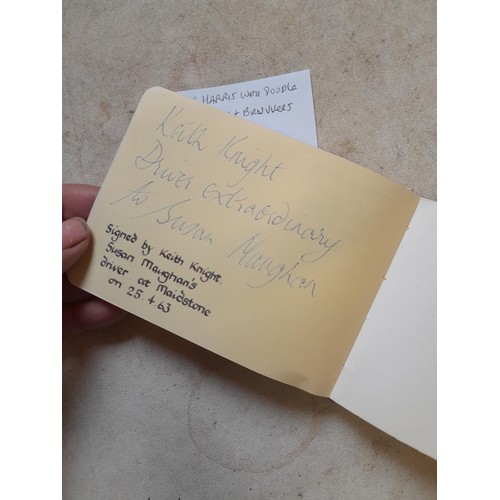 HARRIS WITH DOODLE
+
Keith Knight
Driver extraordinary
to Susan Maughan
Signed by Keith Knight.
Susan Maughan's
driver at Maidstone
on 25.4.63